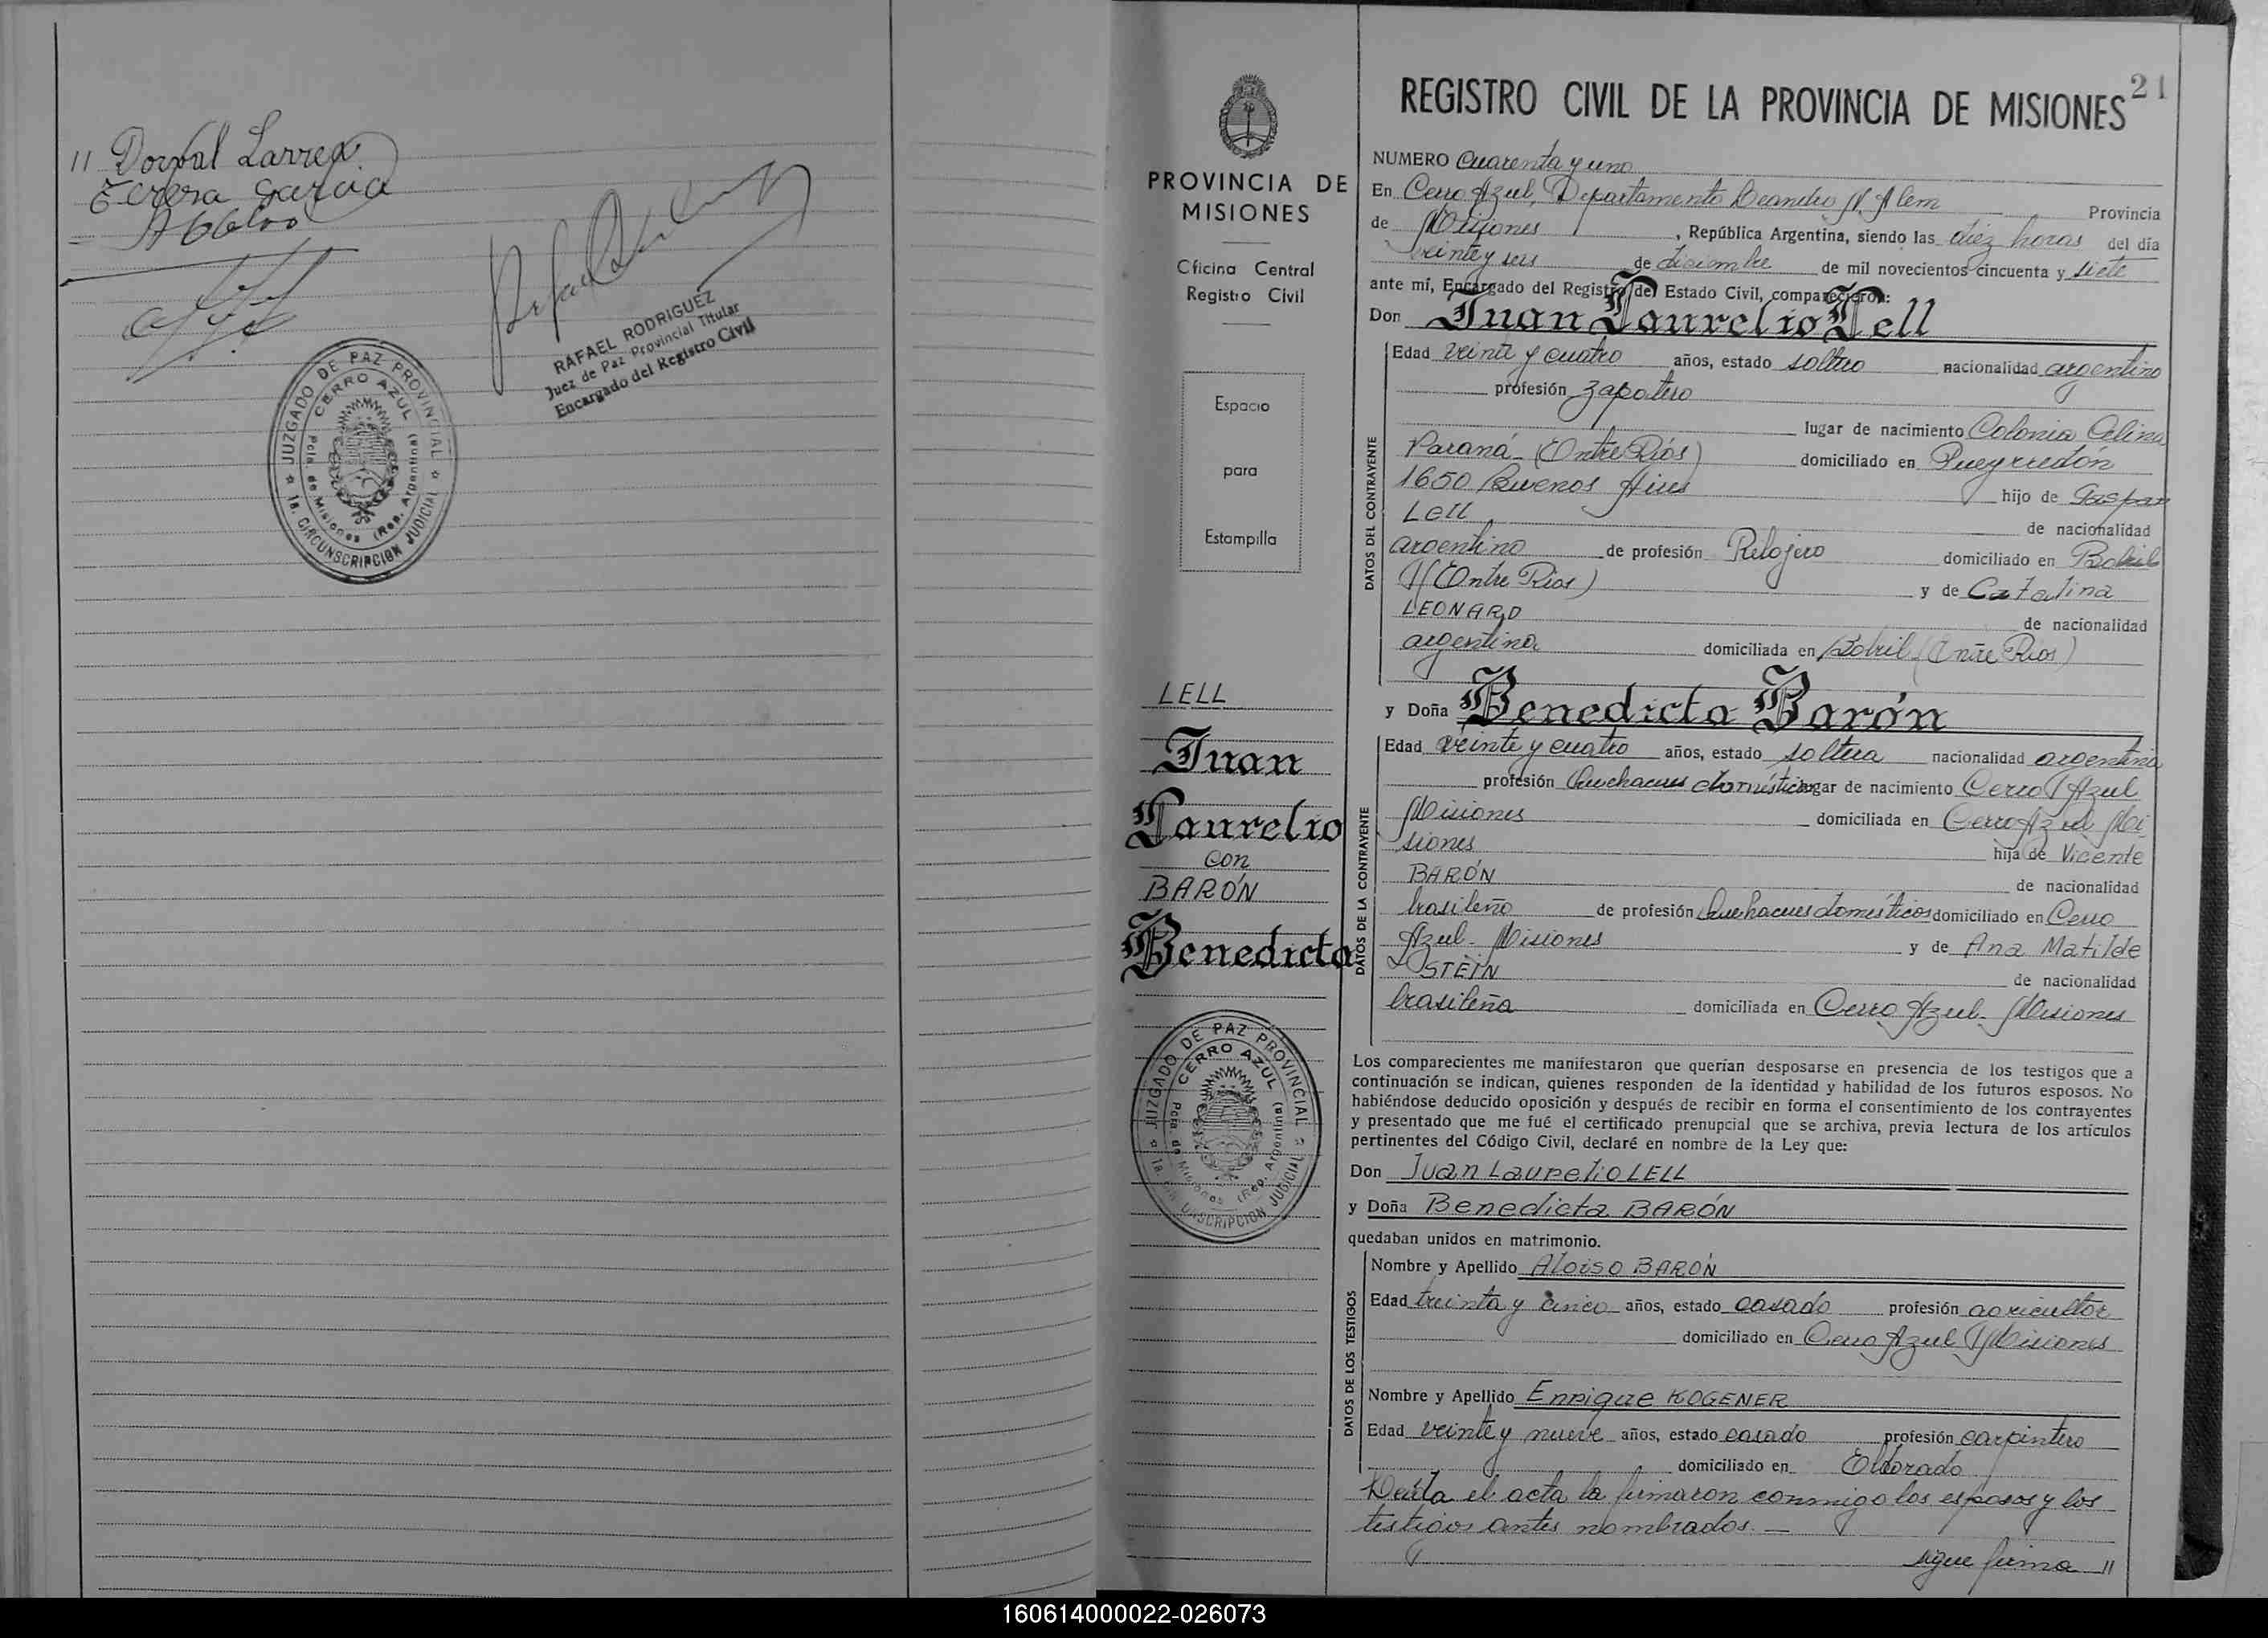 // Dorval Larrea
Teresa Garcia
RAFAEL RODRIGUEZ
Juez de Paz Provincial Titular
Encargado del Registro Civil
JUZGADO DE PAZ PROVINCIAL
CERRO AZUL
Pcia. de Misiones (Rep. Argentina)
1a. CIRCUNSCRIPCION JUDICIAL
PROVINCIA DE
MISIONES
Oficina Central
Registro Civil
Espacio
para
Estampilla
LELL
Juan
Laurelio
con
BARÓN
Benedicta
JUZGADO DE PAZ PROVINCIAL
CERRO AZUL
Pcia. de Misiones (Rep. Argentina)
1a. CIRCUNSCRIPCION JUDICIAL
21
REGISTRO CIVIL DE LA PROVINCIA DE MISIONES
NUMERO Cuarenta y uno
En Cerro Azul, Departamento Leandro N. Alem Provincia
de Misiones, República Argentina, siendo las diez horas del día
veinte y seis de diciembre de mil novecientos cincuenta y siete
ante mí, Encargado del Registro del Estado Civil, comparecieron:
Don Juan Laurelio Lell
DATOS DEL CONTRAYENTE
Edad veinte y cuatro años, estado soltero nacionalidad argentino
profesión zapatero
lugar de nacimiento Colonia Celina
Paraná - (Entre Ríos) domiciliado en Pueyrredón
1650 Buenos Aires hijo de Gaspar
Lell de nacionalidad
argentino de profesión Relojero domiciliado en Bobril
(Entre Ríos) y de Catalina
LEONARD de nacionalidad
argentina domiciliada en Bobril (Entre Ríos)
y Doña Benedicta Barón
DATOS DE LA CONTRAYENTE
Edad veinte y cuatro años, estado soltera nacionalidad argentina
profesión Quehaceres domésticos lugar de nacimiento Cerro Azul
Misiones domiciliada en Cerro Azul Mi
siones hija de Vicente
BARÓN de nacionalidad
brasileño de profesión Quehaceres domésticos domiciliado en Cerro
Azul - Misiones y de Ana Matilde
STEIN de nacionalidad
brasileña domiciliada en Cerro Azul - Misiones
Los comparecientes me manifestaron que querían desposarse en presencia de los testigos que a
continuación se indican, quienes responden de la identidad y habilidad de los futuros esposos. No
habiéndose deducido oposición y después de recibir en forma el consentimiento de los contrayentes
y presentado que me fué el certificado prenupcial que se archiva, previa lectura de los artículos
pertinentes del Código Civil, declaré en nombre de la Ley que:
Don Juan Laurelio LELL
y Doña Benedicta BARÓN
quedaban unidos en matrimonio.
DATOS DE LOS TESTIGOS
Nombre y Apellido Aloiso BARÓN
Edad treinta y cinco años, estado casado profesión agricultor
domiciliado en Cerro Azul Misiones
Nombre y Apellido Enrique KOGENER
Edad veinte y nueve años, estado casado profesión carpintero
domiciliado en Eldorado
Leída el acta la firmaron conmigo los esposos y los
testigos antes nombrados. —
sigue firma //
160614000022-026073